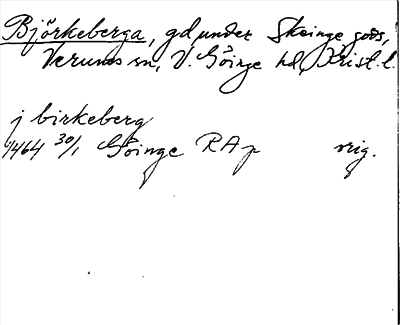 Björkeberga, gd under Skeinge gods,
Verums sn, V. Göinge hd, Krist. l.
j birkeberg
1464 30/1 Göinge RAp orig.